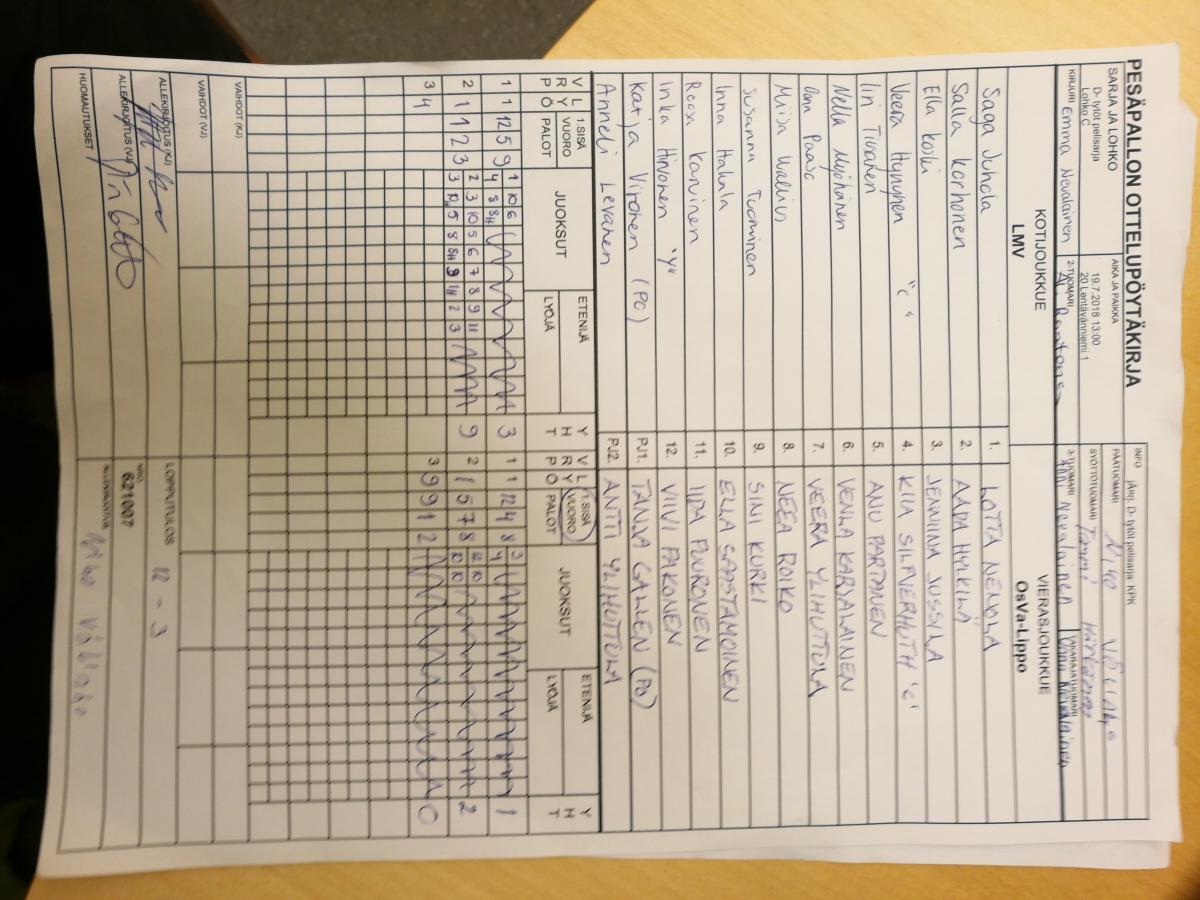 PESÄPALLON OTTELUPÖYTÄKIRJA
INFO järj. D- tytöt pelisarja KPK
SARJA JA LOHKO
D- tytöt pelisarja
Lohko C
AIKA JA PAIKKA
19.7.2018 13:00
20 Lentävänniemi 1
PÄÄTUOMARI
SYÖTTÖTUOMARI Tommi
KIRJURI Emma Nevalainen
2-TUOMARI
3-TUOMARI Nevalainen
TAKARAJATUOMARI
KOTIJOUKKUE
LMV
VIERASJOUKKUE
OsVa-Lippo
Saga Juhola 1. LOTTA NENOLA
Salla Korhonen 2. AADA HYLKILÄ
Ella Koski 3. JENNIINA JUSSILA
Veera Hyynynen "C" 4. KIIA SILFVERHUTH "C"
Iiri Tiirahen 5. ANU PARTANEN
Nella Myöhänen 6. VENLA KARJALAINEN
Oona Paaso 7. VEERA YLIHUTTULA
Miisa Wallius 8. NEEA ROIKO
Susanna Tuominen 9. SINI KURKI
Inna Hakala 10. ELLA SAASTAMOINEN
Roosa Karvinen 11. IIDA PUURONEN
Inka Hirvonen "V" 12. VIIVI PAKONEN
Katja Vironen (PO) PJ1. TANJA GALLEN (PO)
Anneli Levanen PJ2. ANTTI YLIHUTTULA
V R Ö L Y P 1.SISÄ VUORO PALOT JUOKSUT ETENIJÄ LYÖJÄ Y H T
V R Ö L Y P 1.SISÄ VUORO PALOT JUOKSUT ETENIJÄ LYÖJÄ Y H T
1 1 12 5 9 1 10 6 3 1 1 12 4 8 3 1
4 8 8H 4
2 1 1 2 3 2 3 10 5 6 7 8 9 11 9 2 1 5 7 8 10 2
3 10H 5 8 8H 9 1H 2 3 10 10
3 4 3 9 9 1 2 0
VAIHDOT (KJ)
VAIHDOT (VJ)
ALLEKIRJOITUS (KJ)
LOPPUTULOS 12 - 3
ALLEKIRJOITUS (VJ)
NRO
621007
HUOMAUTUKSET
ALLEKIRJOITUS